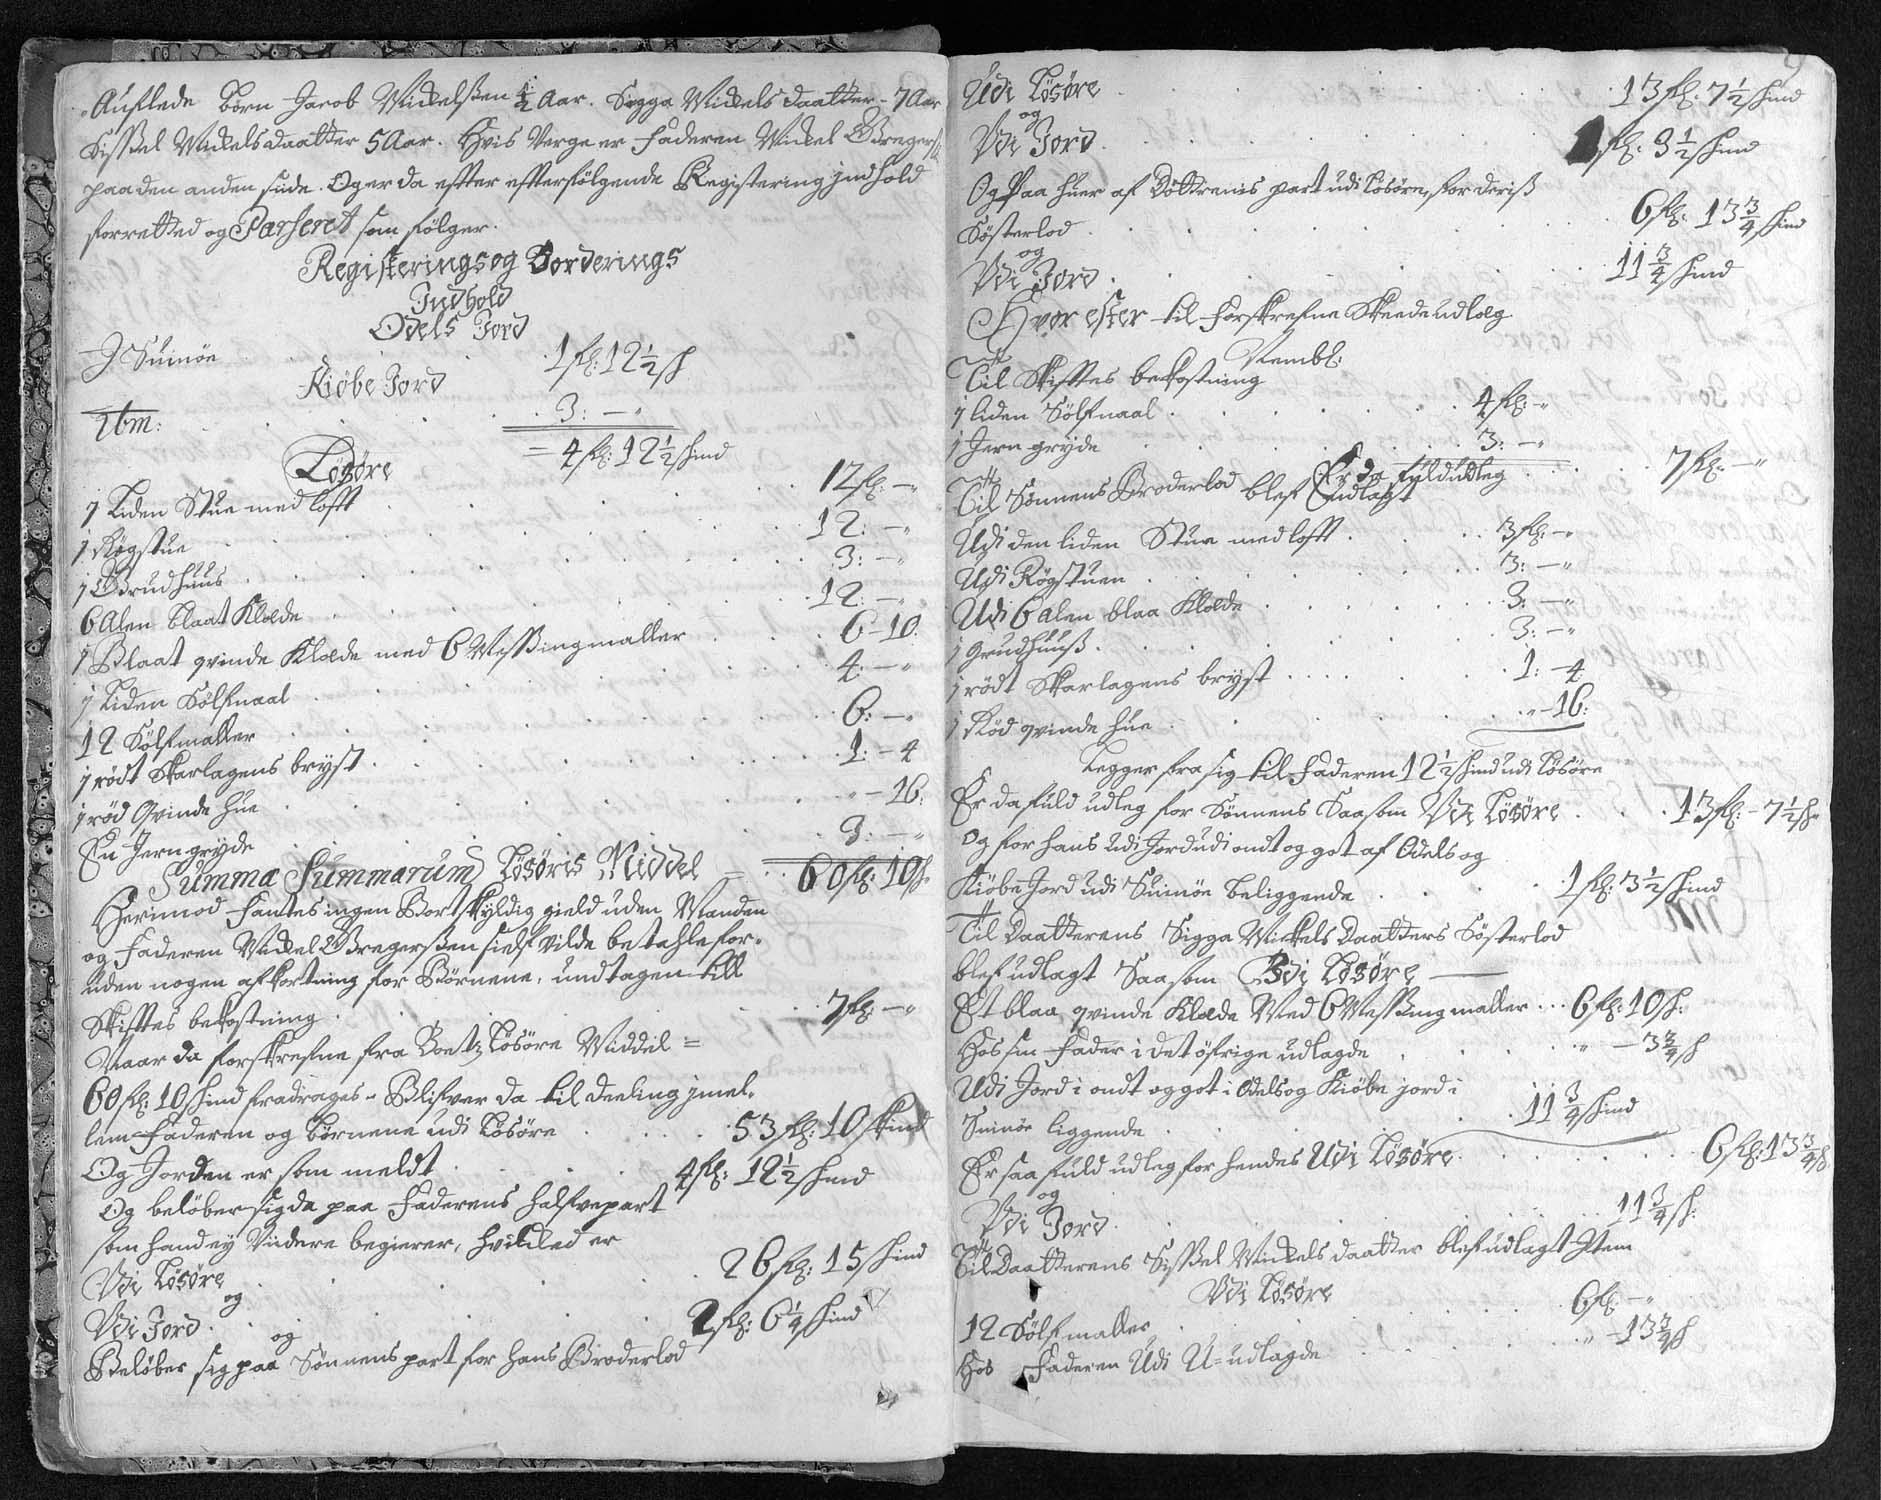 Auflede børn Jacob Mickelsen ½ Aar. Sigga Mickels daatter - 7 Aar
Sissel Mickelsdaatter 5 Aar. Hvis Verge er Faderen Mickel Gregers:
paa den anden side. Og er da efter efterfølgende Registering jndhold
forretted og Passeret som følger.
Registerings og Vorderings
Indhold
Odels Jord
I Suinøe . . . 1 fl: 12½ sk
Kiøbe Jord
Ibm: . . . 3: — "
= 4 fl: 12½ skind
Løsøre
1 Liden Stue med loftt . . . 12 fl: — "
1 Røgstue . . . 12: — "
1 Grudhuus . . . 3: — "
6 Alen blaat Klæde . . . 12: — "
1 Blaat qvinde Klæde med 6 Messingmaller . . . 6 - 10:
1 Liden Sølfnaal . . . 4: — "
12 Sølfmaller . . . 6: — "
1 rødt Skarlagens bryst . . . 1: - 4
1 rød Qvinde hue . . . " - 16:
En Jern gryde . . . 3: — "
Summa Summarum Løsøris Middel = . . 60 fl: 10 sk
Herimod fantes ingen Bortskyldig gield uden Manden
og Faderen Mickel Gregersen sielf vilde betahle for-
uden nogen afkortning for Børnene, undtagen till
Skifftes bekostning . . . 7 fl: — "
Naar da forskrefne fra Boetz Løsøre Middel =
60 fl: 10 skind fradrages - Blifver da til deeling jmel-
lem Faderen og børnene udi Løsøre . . . 53 fl: 10 skind
Og Jorden er som meldt . . . 4 fl: 12½ skind
Og beløber sig da paa Faderens halfvepart
som hand ey Viidere begierer, hvilcked er
Vdi Løsøre . . . 26 fl: 15 skind
og
Vdi Jord . . . 2 fl: 6¼ skind
og
Beløber sig paa Sønnens part for hans Broderlod
9
Udi Løsøre . . . 13 fl: 7½ skind
og
Vdi Jord . . . 1 fl: 3½ skind
Og Paa huer af Døttrenis part udi løsøre, for deris
Søsterlod . . . 6 fl: 13¾ skind
og
Vdi Jord . . . 11¾ skind
Hvor efter til forskrefne Skeede udlæg
Nembl:
Til Skifftes bekostning
1 liden Sølfnaal . . . 4 fl: — "
1 Jern gryde . . . 3: — "
Er da fuld udleg . . . 7 fl: — "
Til Sønnens Broderlod blef Endlagt
Udi den liden Stue med loftt . . . 3 fl: — "
Udi Røgstuen . . . 3: — "
Udi 6 Alen blaa Klæde . . . 3: — "
1 Grudhuuss . . . 3: — "
1 rødt Skarlagens bryst . . . 1: - 4
1 Rød qvinde hue . . . " - 16:
Legger fra sig til Faderen 12½ skind udi Løsøre
Er da fuld udleg for Sønnens Saasom Vdi Løsøre . . . 13 fl: - 7½ sk
Og for hans udi Jord udi ondt og got af Odels og
Kiøbe Jord udi Suinøe beliggende . . . 1 fl: 3½ skind
Til Daatterens Sigga Mickels Daatters Søsterlod
blef udlagt Saasom Vdi Løsøre —
Et blaa qvinde Klæde Med 6 Messingmaller . . . 6 fl: 10 sk:
Hos sin Fader i det øfrige udlagde . . . " - 3¾ sk
Udi Jord i ondt og got i Odels og Kiøbe jord i
Suinøe liggende . . . 11¾ skind
Er saa fuld udleg for hendes Udi Løsøre . . . 6 fl: 13¾ sk
og
Vdi Jord . . . 11¾ sk:
Til Daatterens Sissel Mickels daatter blef udlagt Item
Vdi Løsøre
12 Sølfmaller . . . 6 fl — "
Hos Faderen Udi U= udlagde . . . " - 13¾ sk